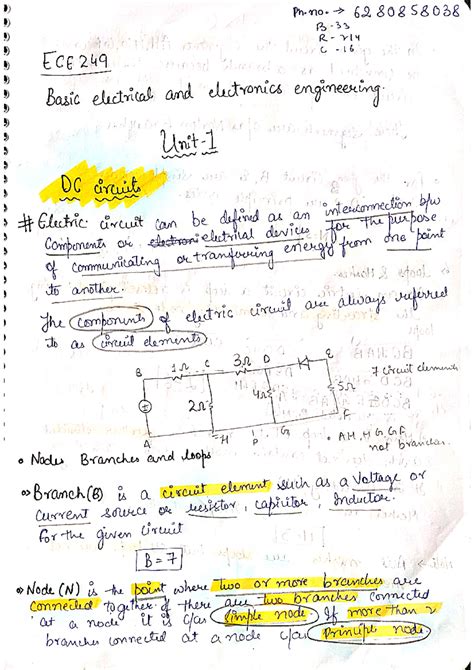 Ph.no. → 6280858038
B-33
R-214
C-16
ECE 249
Basic electrical and electronics engineering.
Unit-1
DC circuits
# Electric circuit can be defined as an interconnection b/w
Components or electrical devices for the purpose
of communicating or tranferring energy from one point
to another.
The components of electric circuit are always referred
to as circuit elements
B 1Ω C 3Ω D E
7 circuit elements
2Ω 4Ω 5Ω
A H P G F
• AH, HG GF
not branches
• Nodes Branches and loops
Branch(B) is a circuit element such as a Voltage or
Current source or resistor, capicitor, Inductor.
for the given circuit
B = 7
Node (N) is the point where two or more branches are
connected together. If there are two branches connected
at a node it is c/as Simple node. If more than 2
branches connected at a node c/as Principle node